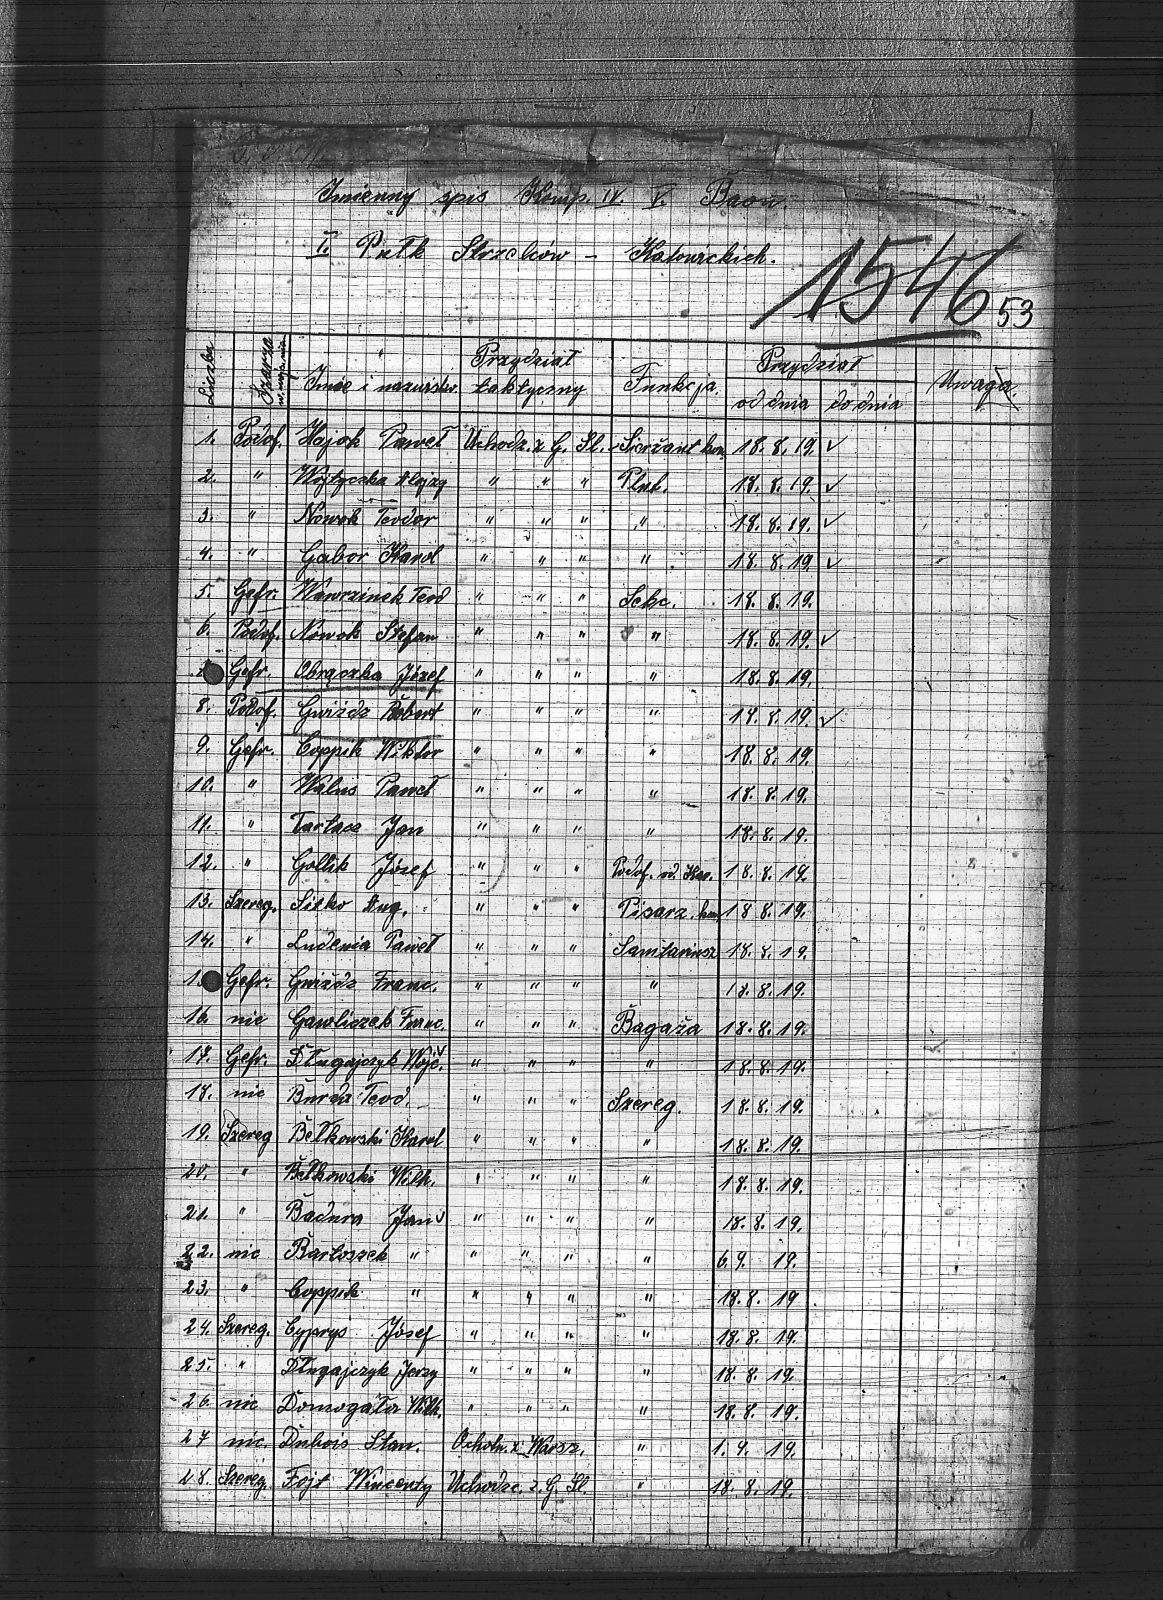 Imienny spis Komp. IV. V. Baon.
I. Pułk Strzelców - Katowickich.
1546 53
Liczba Szarża Imie i nazwisko. Przydział taktyczny Funkcja. Przydział od dnia do dnia Uwaga.
1. Podof. Hajok Paweł Uchodz. z G. Sl. Sierżant kom. 18. 8. 19. ✓
2. " Wojtyczka Alojzy " " " Plut. 18. 8. 19. ✓
3. " Nowok Teodor " " " " 18. 8. 19. ✓
4. " Gabor Karol " " " " 18. 8. 19. ✓
5. Gefr. Wawrzinek Teod " " " Sekc. 18. 8. 19.
6. Podof. Nowok Stefan " " " " 18. 8. 19. ✓
Gefr. Obrączka Józef " " " " 18. 8. 19.
8. Podof. Gwiźdz Robert " " " " 18. 8. 19. ✓
9. Gefr. Coppik Wiktor " " " " 18. 8. 19.
10. " Walus Paweł " " " " 18. 8. 19.
11. " Tarlacz Jan " " " " 18. 8. 19.
12. " Gollik Józef " " " Podof. 18. 8. 19.
13. Szereg. Sitko Aug. " " " Pisarz kom. 18 8. 19.
14. " Ludenia Paweł " " " Sanitariusz 18. 8. 19.
1 Gefr. Gwiźdz Franc. " " " " 18. 8. 19.
16. nic Gawliczek Franc. " " " Bagaża 18. 8. 19.
17. Gefr. Długajczyk Wojc. " " " " 18. 8. 19.
18. nic Burda Teod. " " " Szereg. 18. 8. 19.
19. Szereg Bełkowski Karol " " " " 18. 8. 19.
20. " Bełkowski Wilh. " " " " 18. 8. 19.
21. " Badura Jan " " " " 18. 8. 19.
22. nic Bartoszek " " " " " 6. 9. 19.
23. " Coppik " " " " " 18. 8. 19
24. Szereg. Cyprys Józef " " " " 18. 8. 19.
25. " Długajczyk Jerzy " " " " 18. 8. 19.
26. nic Domogała Wilh. " " " " 18. 8. 19.
27 nic. Dubois Stan. Ochotn. z Warsz. " 1. 9. 19.
28. Szereg. Fojt Wincenty Uchodzc. z G. Sl. " 18. 8. 19.